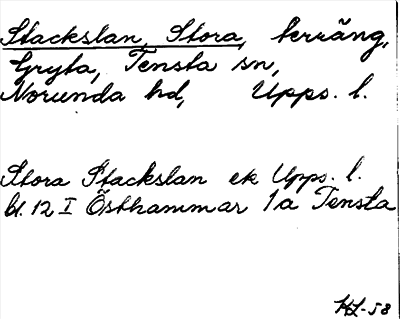 Stackslan, Stora, terräng,
Gryta, Tensta sn,
Norunda hd, Upps. l.
Stora Stackslan ek Upps. l.
bl. 12 I Östhammar 1a Tensta
HL-58